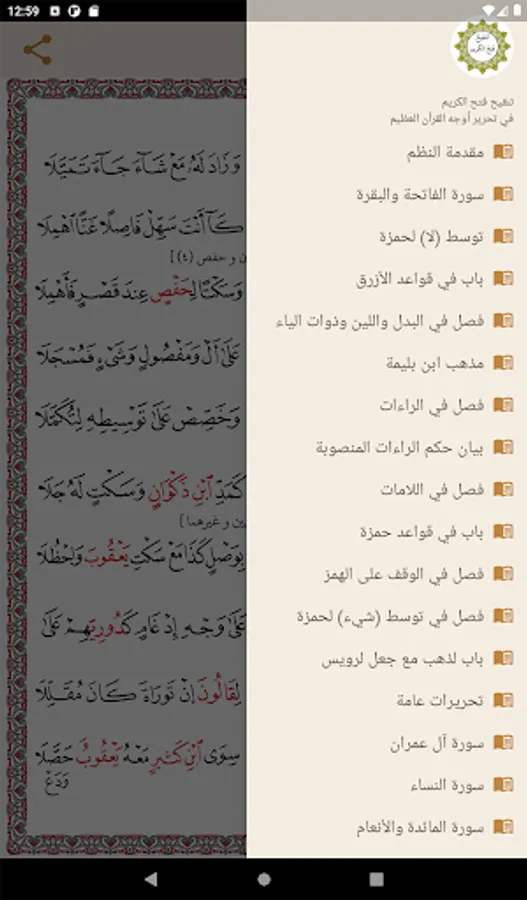 12:59
تنقيح فتح الكريم
في تحرير أوجه القرآن العظيم
مقدمة النظم
سورة الفاتحة والبقرة
توسط (لا) لحمزة
باب في قواعد الأزرق
فصل في البدل واللين وذوات الياء
مذهب ابن بليمة
فصل في الراءات
بيان حكم الراءات المنصوبة
فصل في اللامات
باب في قواعد حمزة
فصل في الوقف على الهمز
فصل في توسط (شيء) لحمزة
باب لذهب مع جعل لرويس
تحريرات عامة
سورة آل عمران
سورة النساء
سورة المائدة والأنعام
وَزَادَ لَهُ مَعْ شَاءَ جَاءَ تَمَيَّلَا
كَآأَنْتَ سَهِّلْ فَاصِلًا عَنَّا اهْمِلَا
ن و حفص (٤) ]
وَسَكْتًا لِحَفْصٍ عِندَ قَصْرٍ فَأَهْمِلَا
عَلَىٰ أَلْ وَمَفْصُولٍ وَشَيْءٍ فَمُسْجَلَا
وَخَصِّصْ عَلَىٰ تَوْسِيطِهِ لِتُكَمِّلَا
كَمَدِّ ابْنِ ذَكْوَانٍ وَسَكْتٍ لَهُ جَلَا
ين و غيرهما ]
بِوَصْلٍ كَذَا مَعْ سَكْتِ يَعْقُوبَ وَاحْظُلَا
عَلَىٰ وَجْهِ إِدْغَامٍ كَدُورِيِّهِمْ عَلَىٰ
لِقَالُونَ إِنْ تَوْرَاةَ كَانَ مُقَلِّلَا
سِوَى ابْنِ كَثِيرٍ مَعْهُ يَعْقُوبُ حَصَّلَا
وَدَعْ